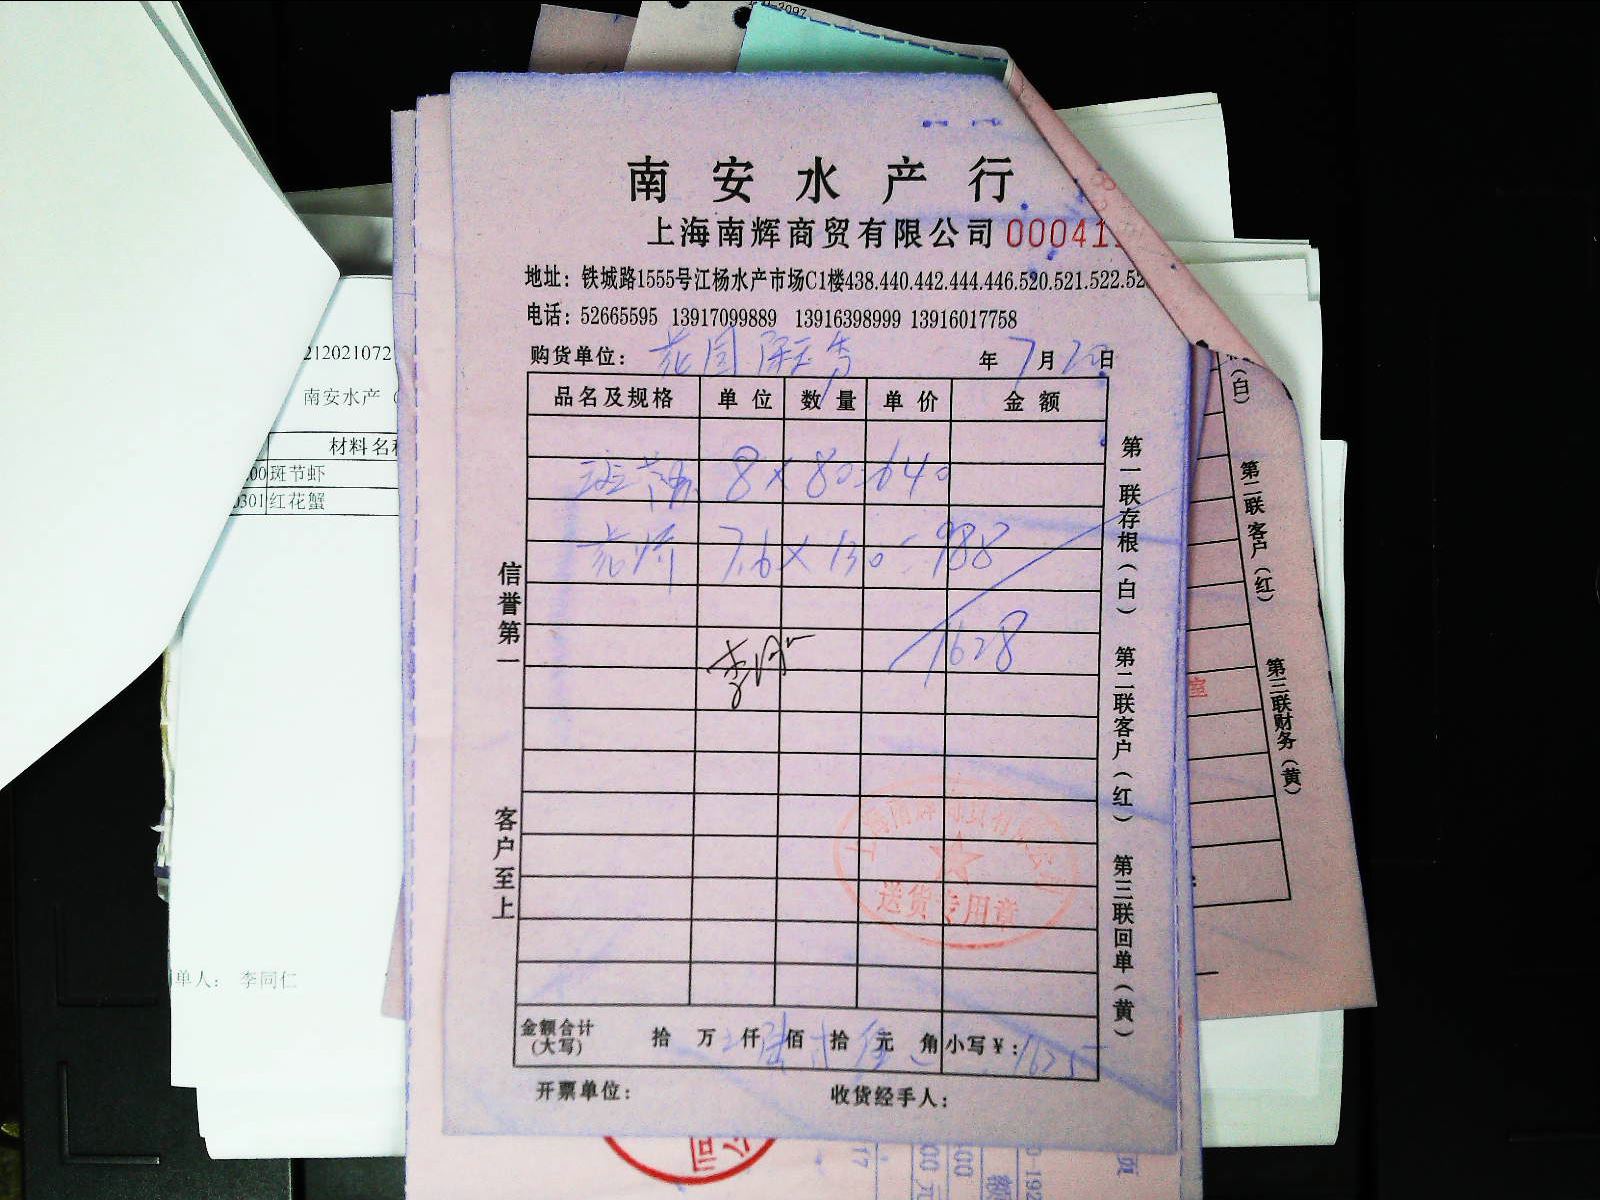 南安水产行
上海南辉商贸有限公司 00041
地址：铁城路1555号江杨水产市场C1楼438.440.442.444.446.520.521.522.52
电话：52665595 13917099889 13916398999 13916017758
购货单位： 花园 年7月20日
品名及规格 单位 数量 单价 金额
斑节虾 8×80=640
7.6×130=988
1628
信誉第一
客户至上
第一联存根（白） 第二联客户（红） 第三联回单（黄）
送货专用章
金额合计（大写） 拾 万 仟 佰 拾 元 角 小写￥：
开票单位： 收货经手人：
212021072
南安水产（
材料名称
00 斑节虾
0301 红花蟹
单人： 李同仁
（白）
第二联客户（红）
第三联财务（黄）
室
17